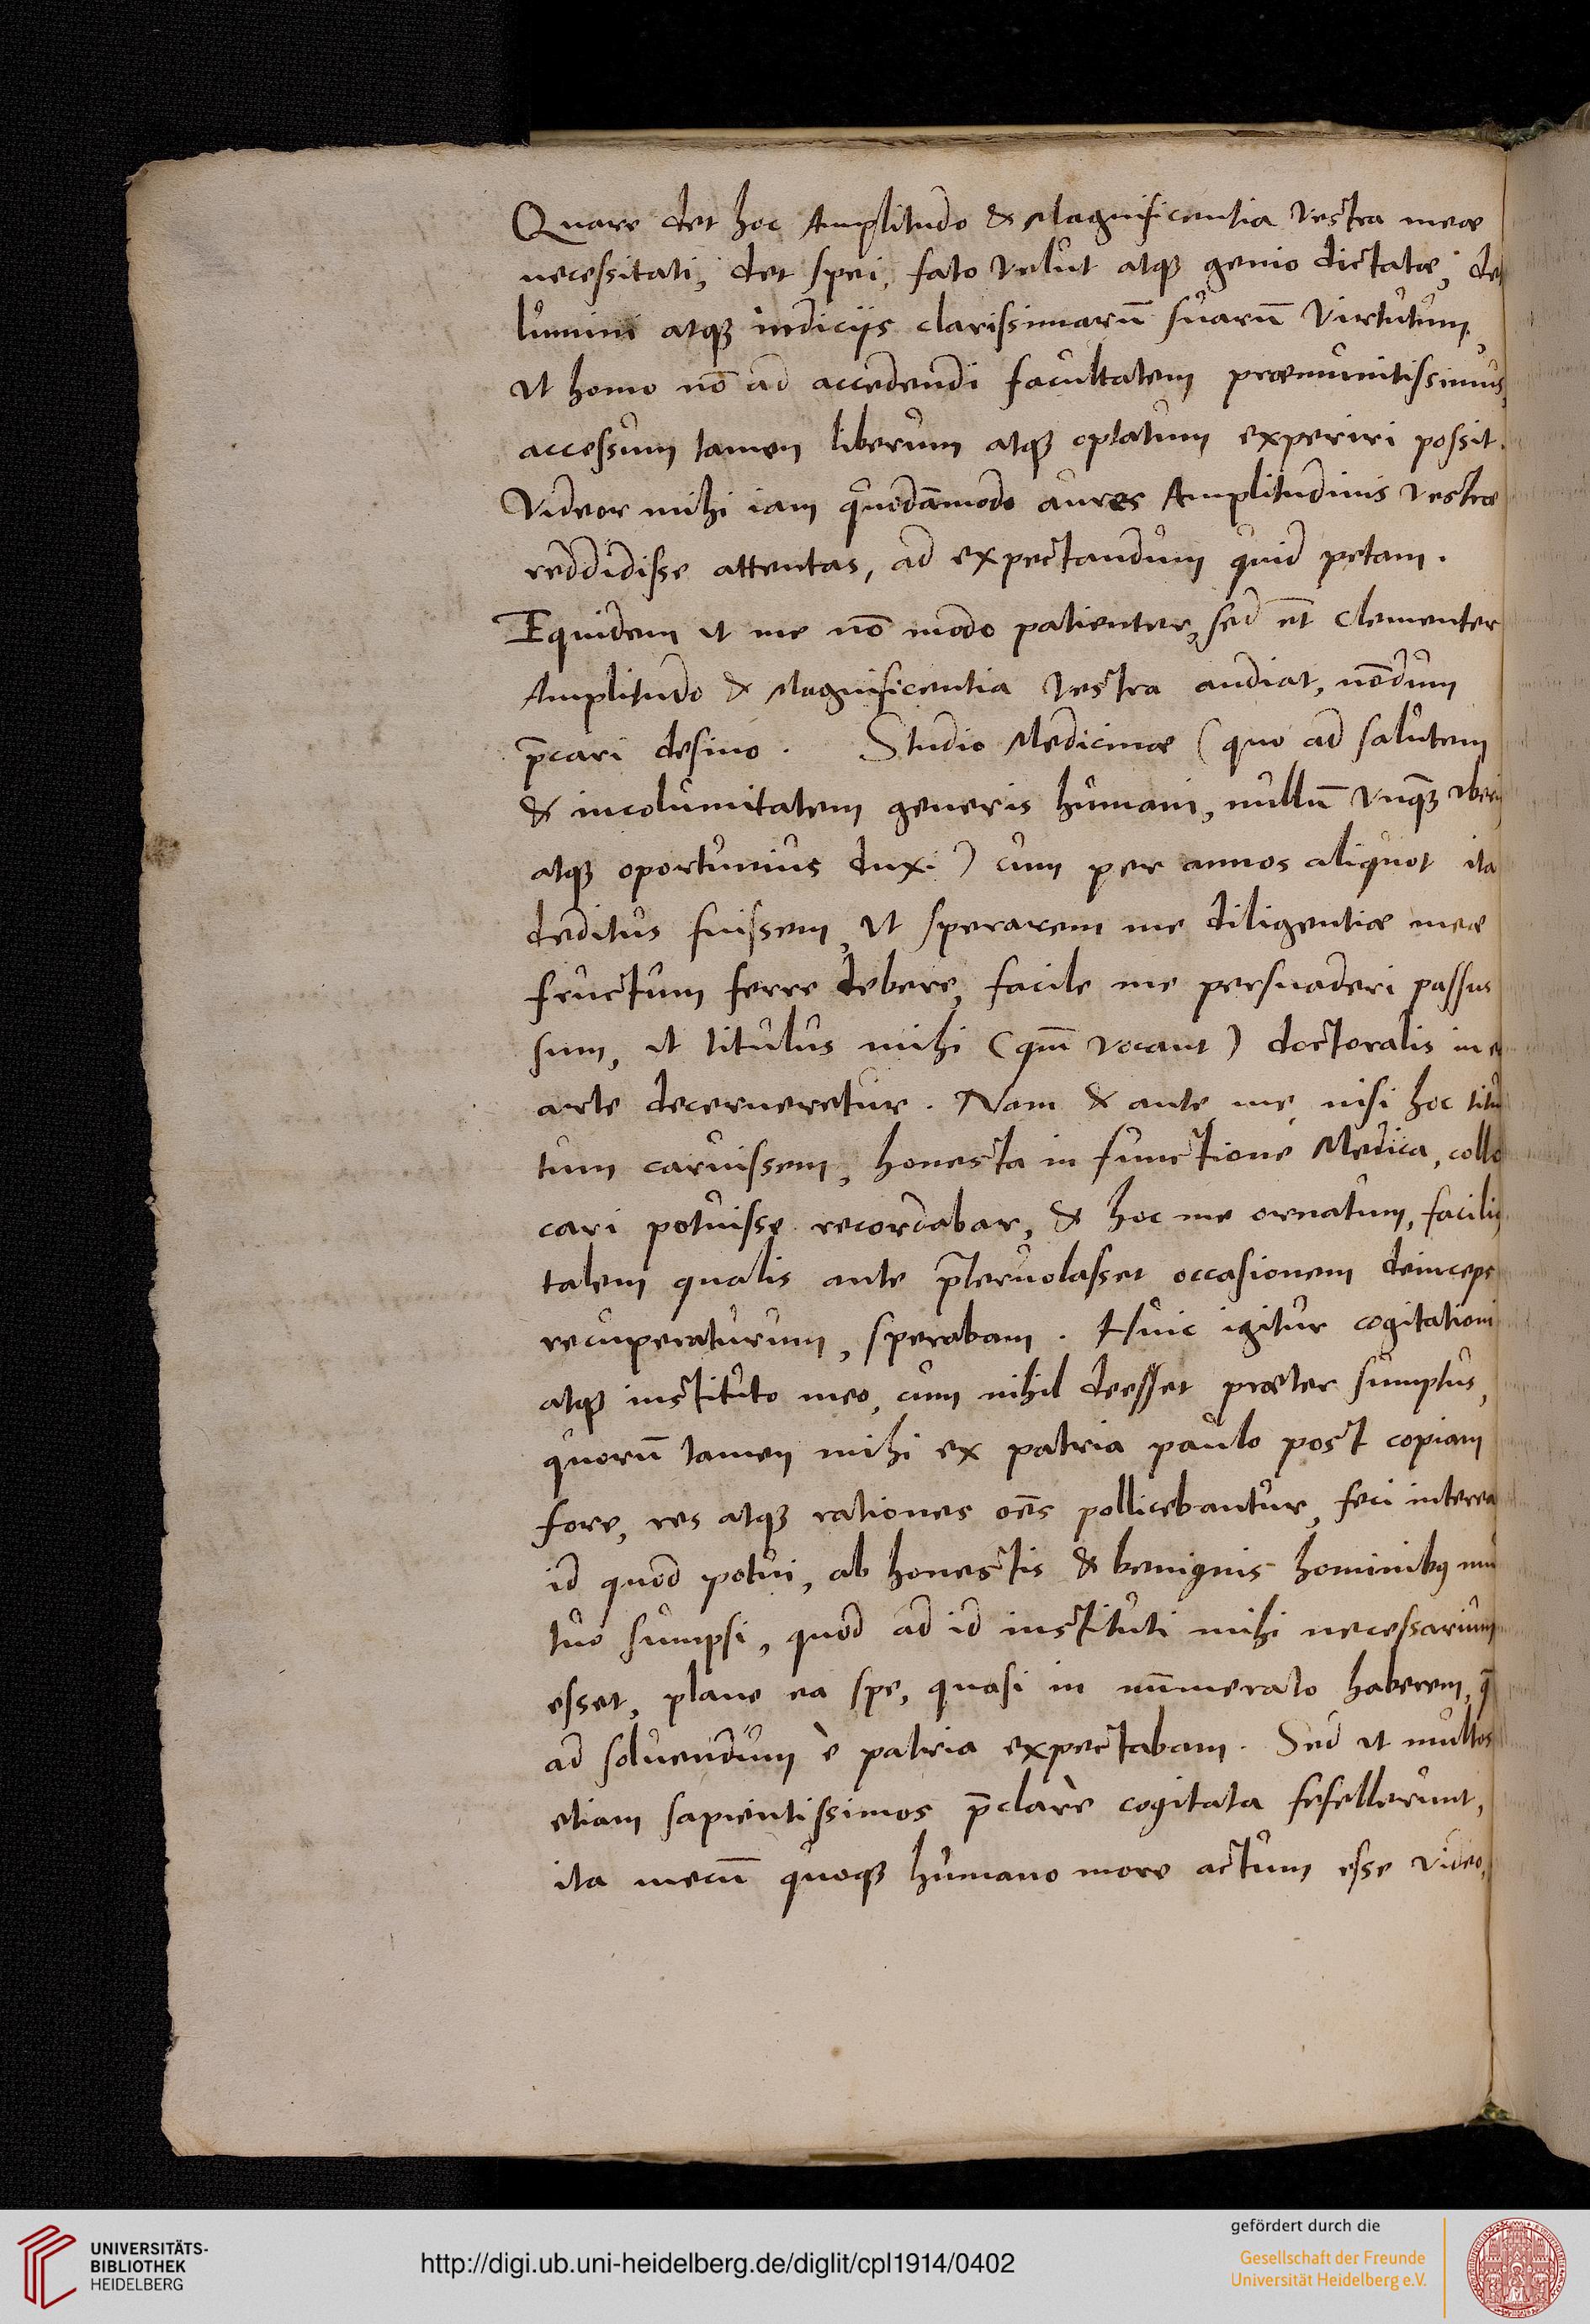 Quare det hoc Amplitudo & Magnificentia Vestra meæ
necessitati, det spei, fato velut atqꝫ genio dictatæ, det
lumini atqꝫ indicijs clarissimarū suarū Virtutum,
ut homo nō ad accedendi facultatem præmunitissimus,
accessum tamen liberum atqꝫ optatum experiri possit.
Videor mihi iam quodāmodo aures Amplitudinis Vestræ
reddidisse attentas, ad expectandum quid petam.
Equidem ut me nō modo patienter, sed et̄ clementer
Amplitudo & Magnificentia Vestra audiat, nōdum
p̄cari desino. Studio Medicinæ (quo ad salutem
& incolumitatem generis humani, nullū vnqꝫ
atqꝫ oportunius duxi) cum per annos aliquot ita
deditus fuissem, ut sperarem me diligentiæ meæ
fructum ferre debere, facile me persuaderi passus
sum, ut titulus mihi (qm̄ vocant) doctoralis in
arte decerneretur. Nam & ante me, nisi hoc titu
tum caruissem, honesta in functione Medica, collo
cari potuisse recordabar, & hoc me ornatum, facilius
talem qualis ante p̄teruolasset occasionem deinceps
recuperaturum, sperabam. Huic igitur cogitationi
atqꝫ instituto meo, cum nihil deesset præter sumptus,
quorū tamen mihi ex patria paulo post copiam
fore, res atqꝫ rationes oēs pollicebantur, feci interea
id quod potui, ab honestis & benignis hominibꝰ mu
tuo sumpsi, quod ad id instituti mihi necessarium
esset, plane ea spe, quasi in nūmerato haberem, q̄
ad soluendum è patria expectabam. Sed ut multos
etiam sapientissimos p̄clarè cogitata fefellerunt,
ita mecū quoqꝫ humano more actum esse video,
UNIVERSITÄTS-
BIBLIOTHEK
HEIDELBERG
http://digi.ub.uni-heidelberg.de/diglit/cpl1914/0402
gefördert durch die
Gesellschaft der Freunde
Universität Heidelberg e.V.